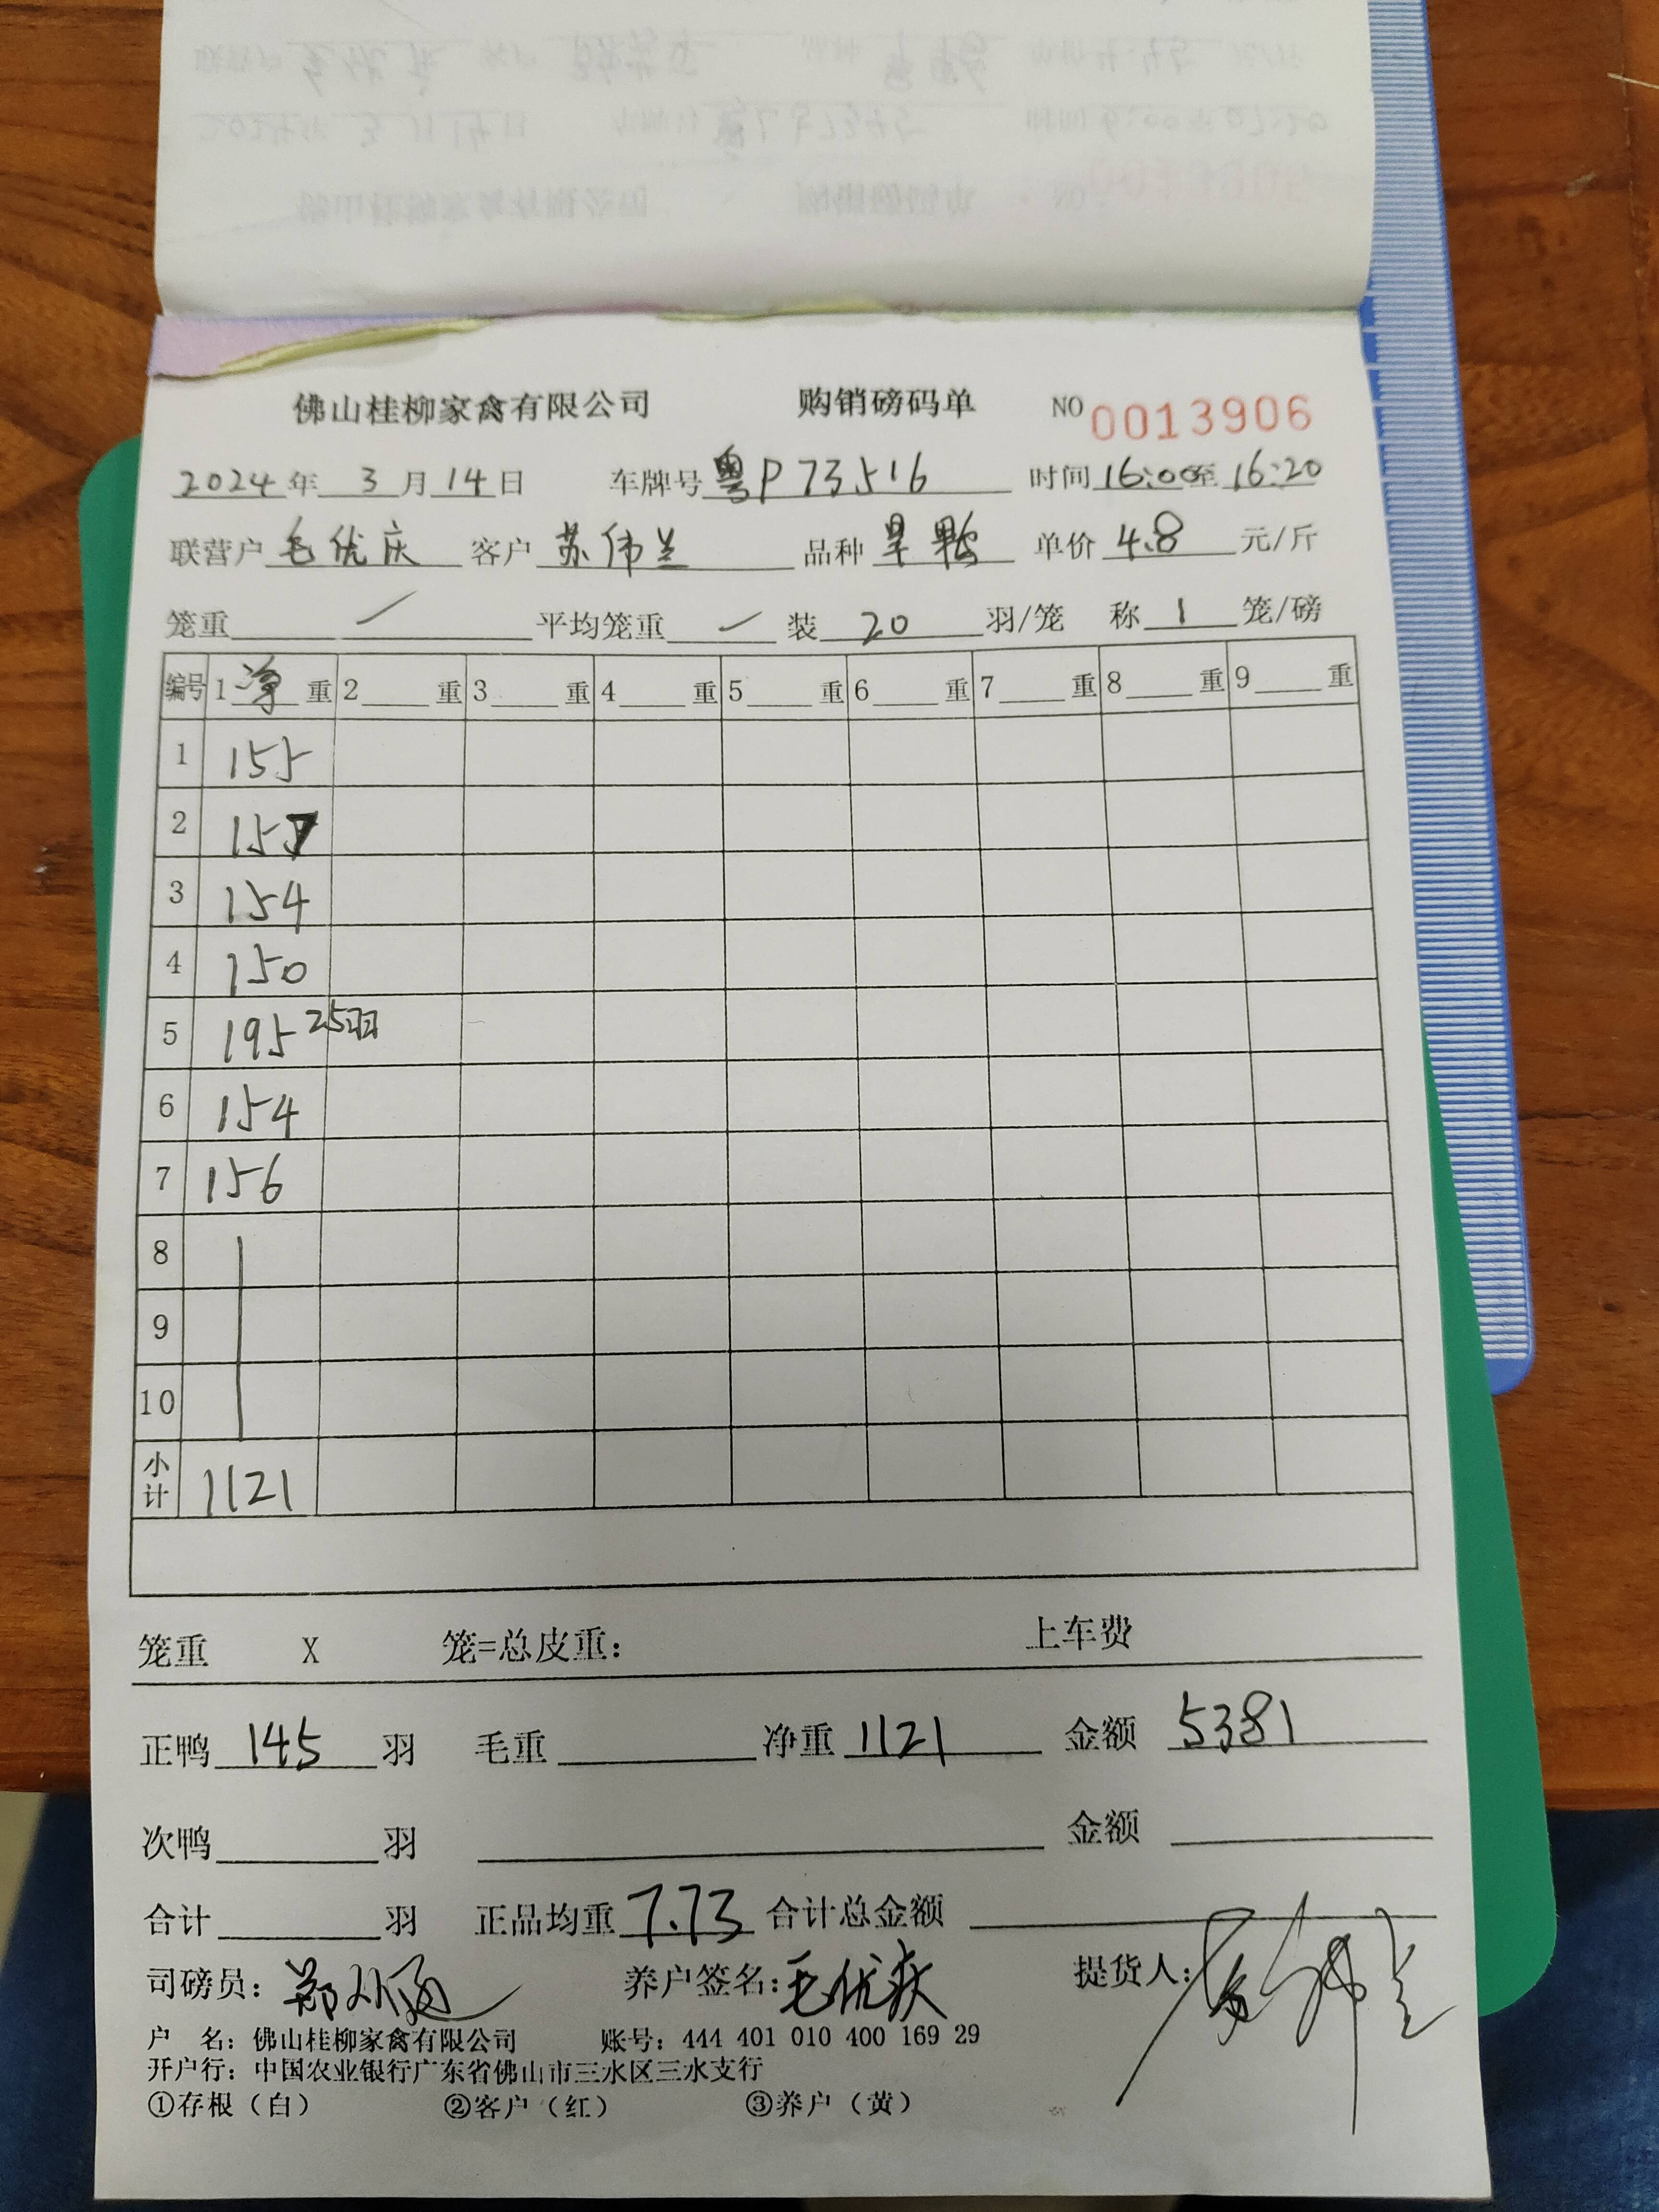 佛山桂柳家禽有限公司 购销磅码单 NO 0013906
2024年 3月14日 车牌号 粤P73516 时间 16:00至16:20
联营户 毛优庆 客户 苏伟兰 品种 单价 4.8 元/斤
笼重 / 平均笼重 / 装 20 羽/笼 称 1 笼/磅
编号 1 净 重 2 重 3 重 4 重 5 重 6 重 7 重 8 重 9 重
1 155
2 157
3 154
4 150
5 195 25羽
6 154
7 156
8
9
10
小计 1121
笼重 X 笼=总皮重： 上车费
正鸭 145 羽 毛重 净重 1121 金额 5381
次鸭 羽 金额
合计 羽 正品均重 7.73 合计总金额
司磅员： 养户签名：毛优庆 提货人：苏伟兰
户 名：佛山桂柳家禽有限公司 账号：444 401 010 400 169 29
开户行：中国农业银行广东省佛山市三水区三水支行
①存根（白） ②客户（红） ③养户（黄）